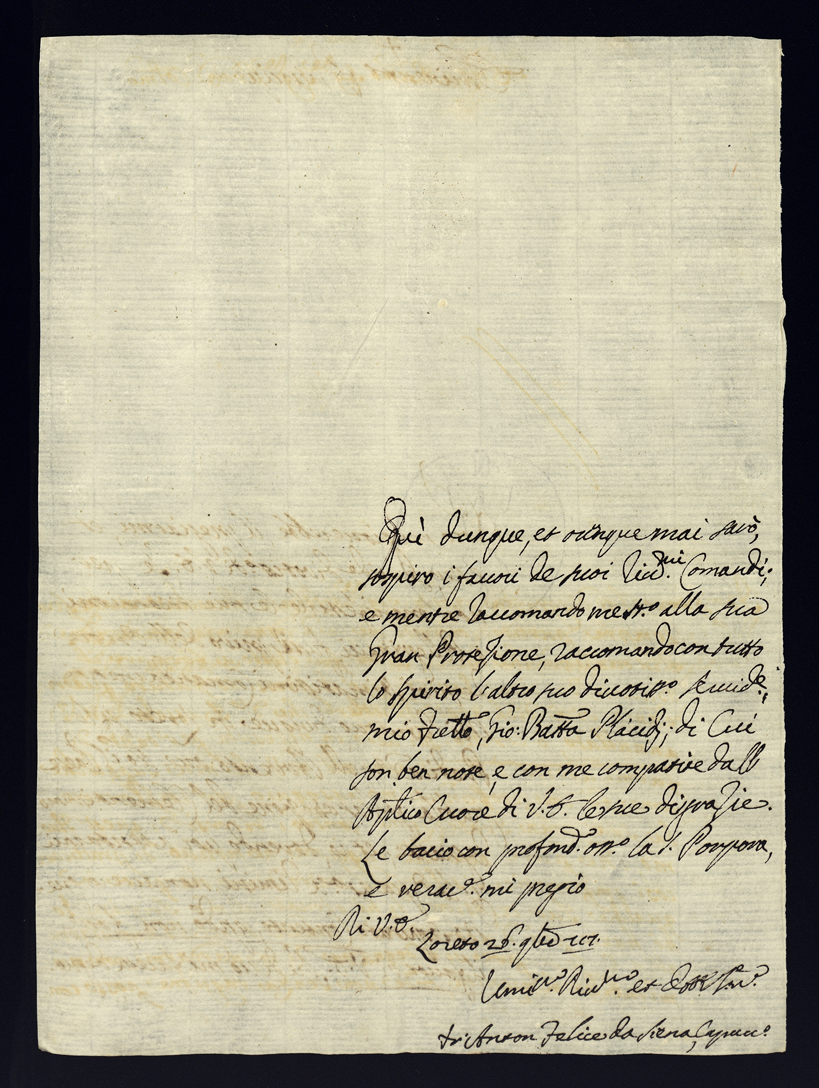 Quì dunque, et ovũque mai sarò,
sospiro i favori de suoi Rid.mi Comandi;
e mentre raccomando me st.o alla sua
Gran Protezione, raccomando con tutto
lo spirito l'altro suo divotiss.o
mio Frello, Gio: Batta Placidj; di Cui
son ben note, e con me compatite dall
Aplico Cuore di V. E. le sue disgrazie.
Le bacio con profond. oss.o la S. Porpora,
e verac.e mi pregio
Di V. E.
Loreto 26. 9bre
Umil.o et Serv.e
fr: Anton Felice da Siena, Capucc.o